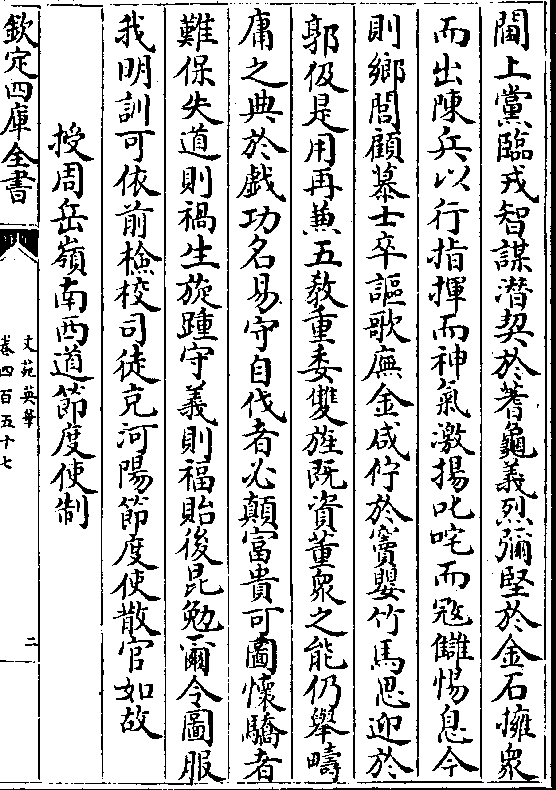 閫上黨臨戎智謀潜契於蓍龜義烈彌堅於金石擁衆
而出陳兵以行指揮而神氣激揚叱咤而冦讎惕息今
則鄉閭顧慕士卒謳歌廡金咸佇於竇嬰竹馬思迎於
郭伋是用再兼五敎重委雙旌既資董衆之能仍舉疇
庸之典於戯功名易守自伐者必顛富貴可圖懷驕者
難保失道則禍生旋踵守義則福貽後昆勉爾令圖服
我明訓可依前檢校司徒充河陽節度使散官如故
授周岳嶺南西道節度使制
欽定四庫全書
文苑英華
卷四百五十七
二